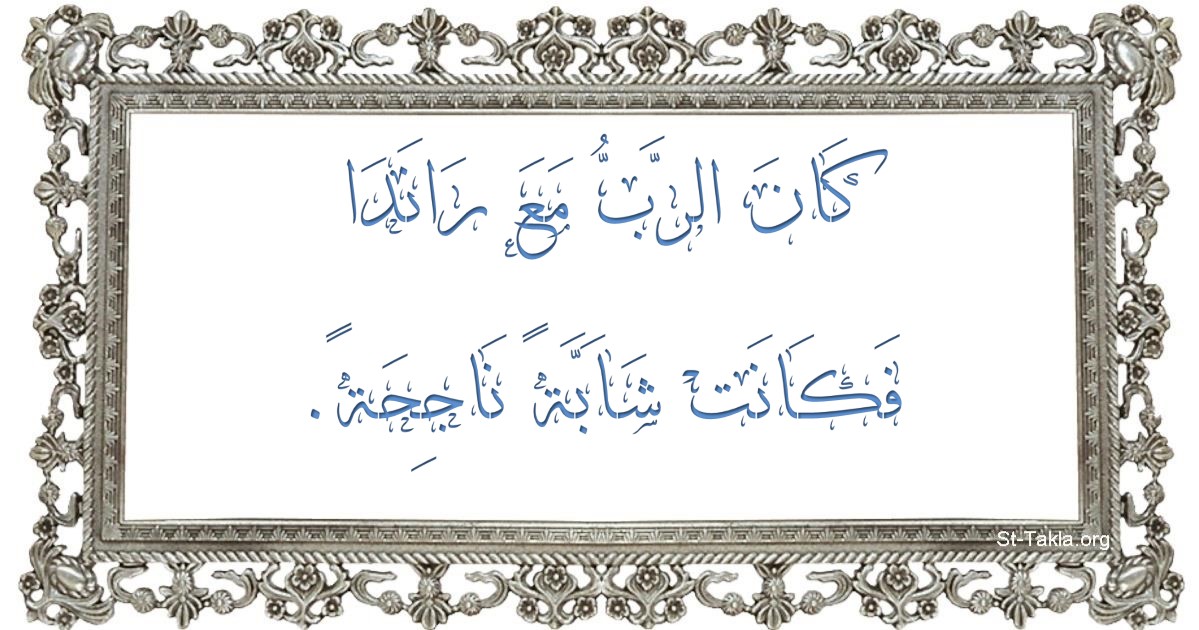 كَانَ الرَّبُّ مَعَ رَانَدَا
فَكَانَتْ شَابَّةً نَاجِحَةً.
St-Takla.org